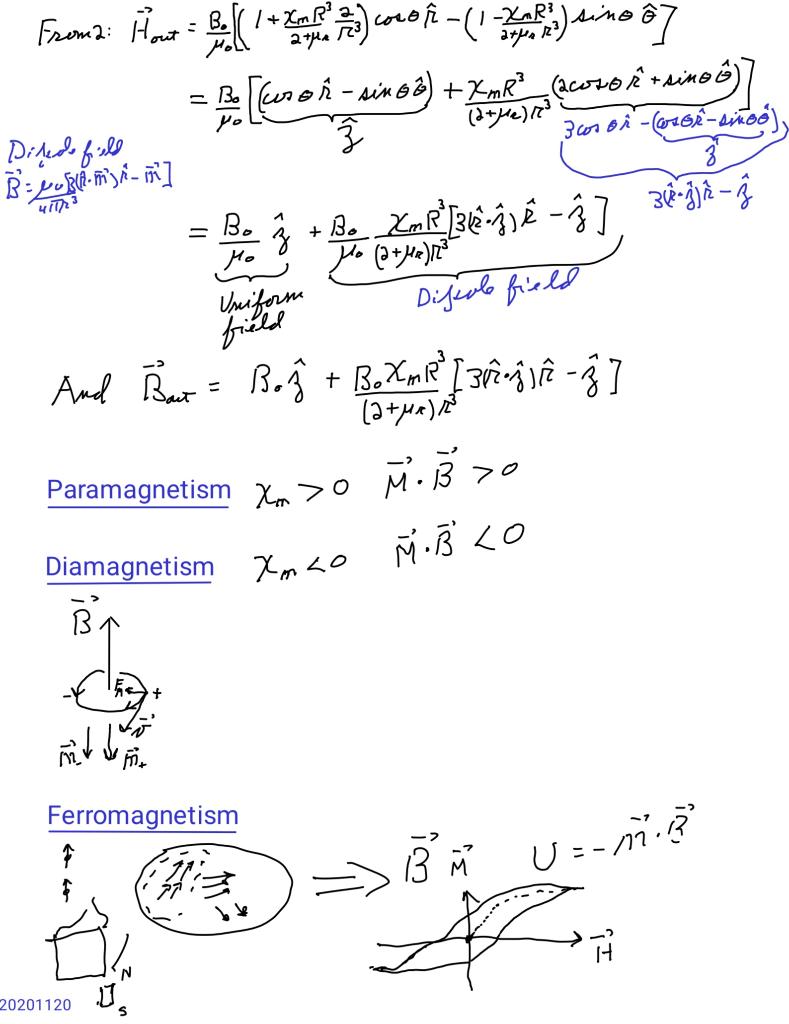 From 2: H⃗out = B₀/μ₀ [(1 + χₘR³/(2+μᵣ) 2/r³) cosθ r̂ − (1 − χₘR³/(2+μᵣ)r³) sinθ θ̂]
= B₀/μ₀ [(cosθ r̂ − sinθ θ̂) + χₘR³/(2+μᵣ)r³ (2cosθ r̂ + sinθ θ̂)]
ẑ
3cosθ r̂ − (cosθ r̂ − sinθ θ̂)
ẑ
3(r̂·ẑ)r̂ − ẑ
Dipole field
B⃗ = μ₀/4πr³ [3(r̂·m⃗)r̂ − m⃗]
= B₀/μ₀ ẑ + B₀/μ₀ χₘR³/(2+μᵣ)r³ [3(r̂·ẑ)r̂ − ẑ]
Uniform
field
Dipole field
And B⃗out = B₀ẑ + B₀χₘR³/(2+μᵣ)r³ [3(r̂·ẑ)r̂ − ẑ]
Paramagnetism χₘ > 0 M⃗·B⃗ > 0
Diamagnetism χₘ < 0 M⃗·B⃗ < 0
B⃗
− +
v⃗
m⃗₋ m⃗₊
Ferromagnetism
B⃗ M⃗ U = −m⃗·B⃗
H⃗
N
S
20201120